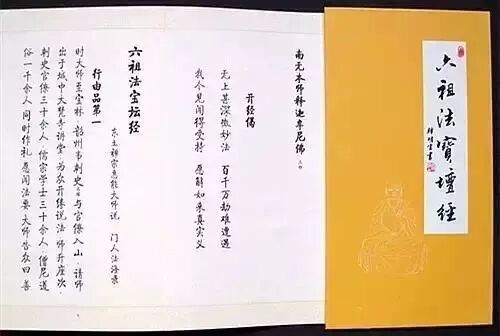 六祖法寶壇經
南无本师释迦牟尼佛 三称
开经偈
无上甚深微妙法 百千万劫难遭遇
我今见闻得受持 愿解如来真实义
六祖法宝坛经
东土禅宗惠能大师说 门人法海录
行由品第一
时大师至宝林,韶州韦刺史与官僚入山,请师
出于城中大梵寺讲堂,为众开缘说法。师升座次,
刺史官僚三十余人,儒宗学士三十余人,僧尼道
俗一千余人,同时作礼,愿闻法要。大师告众曰善